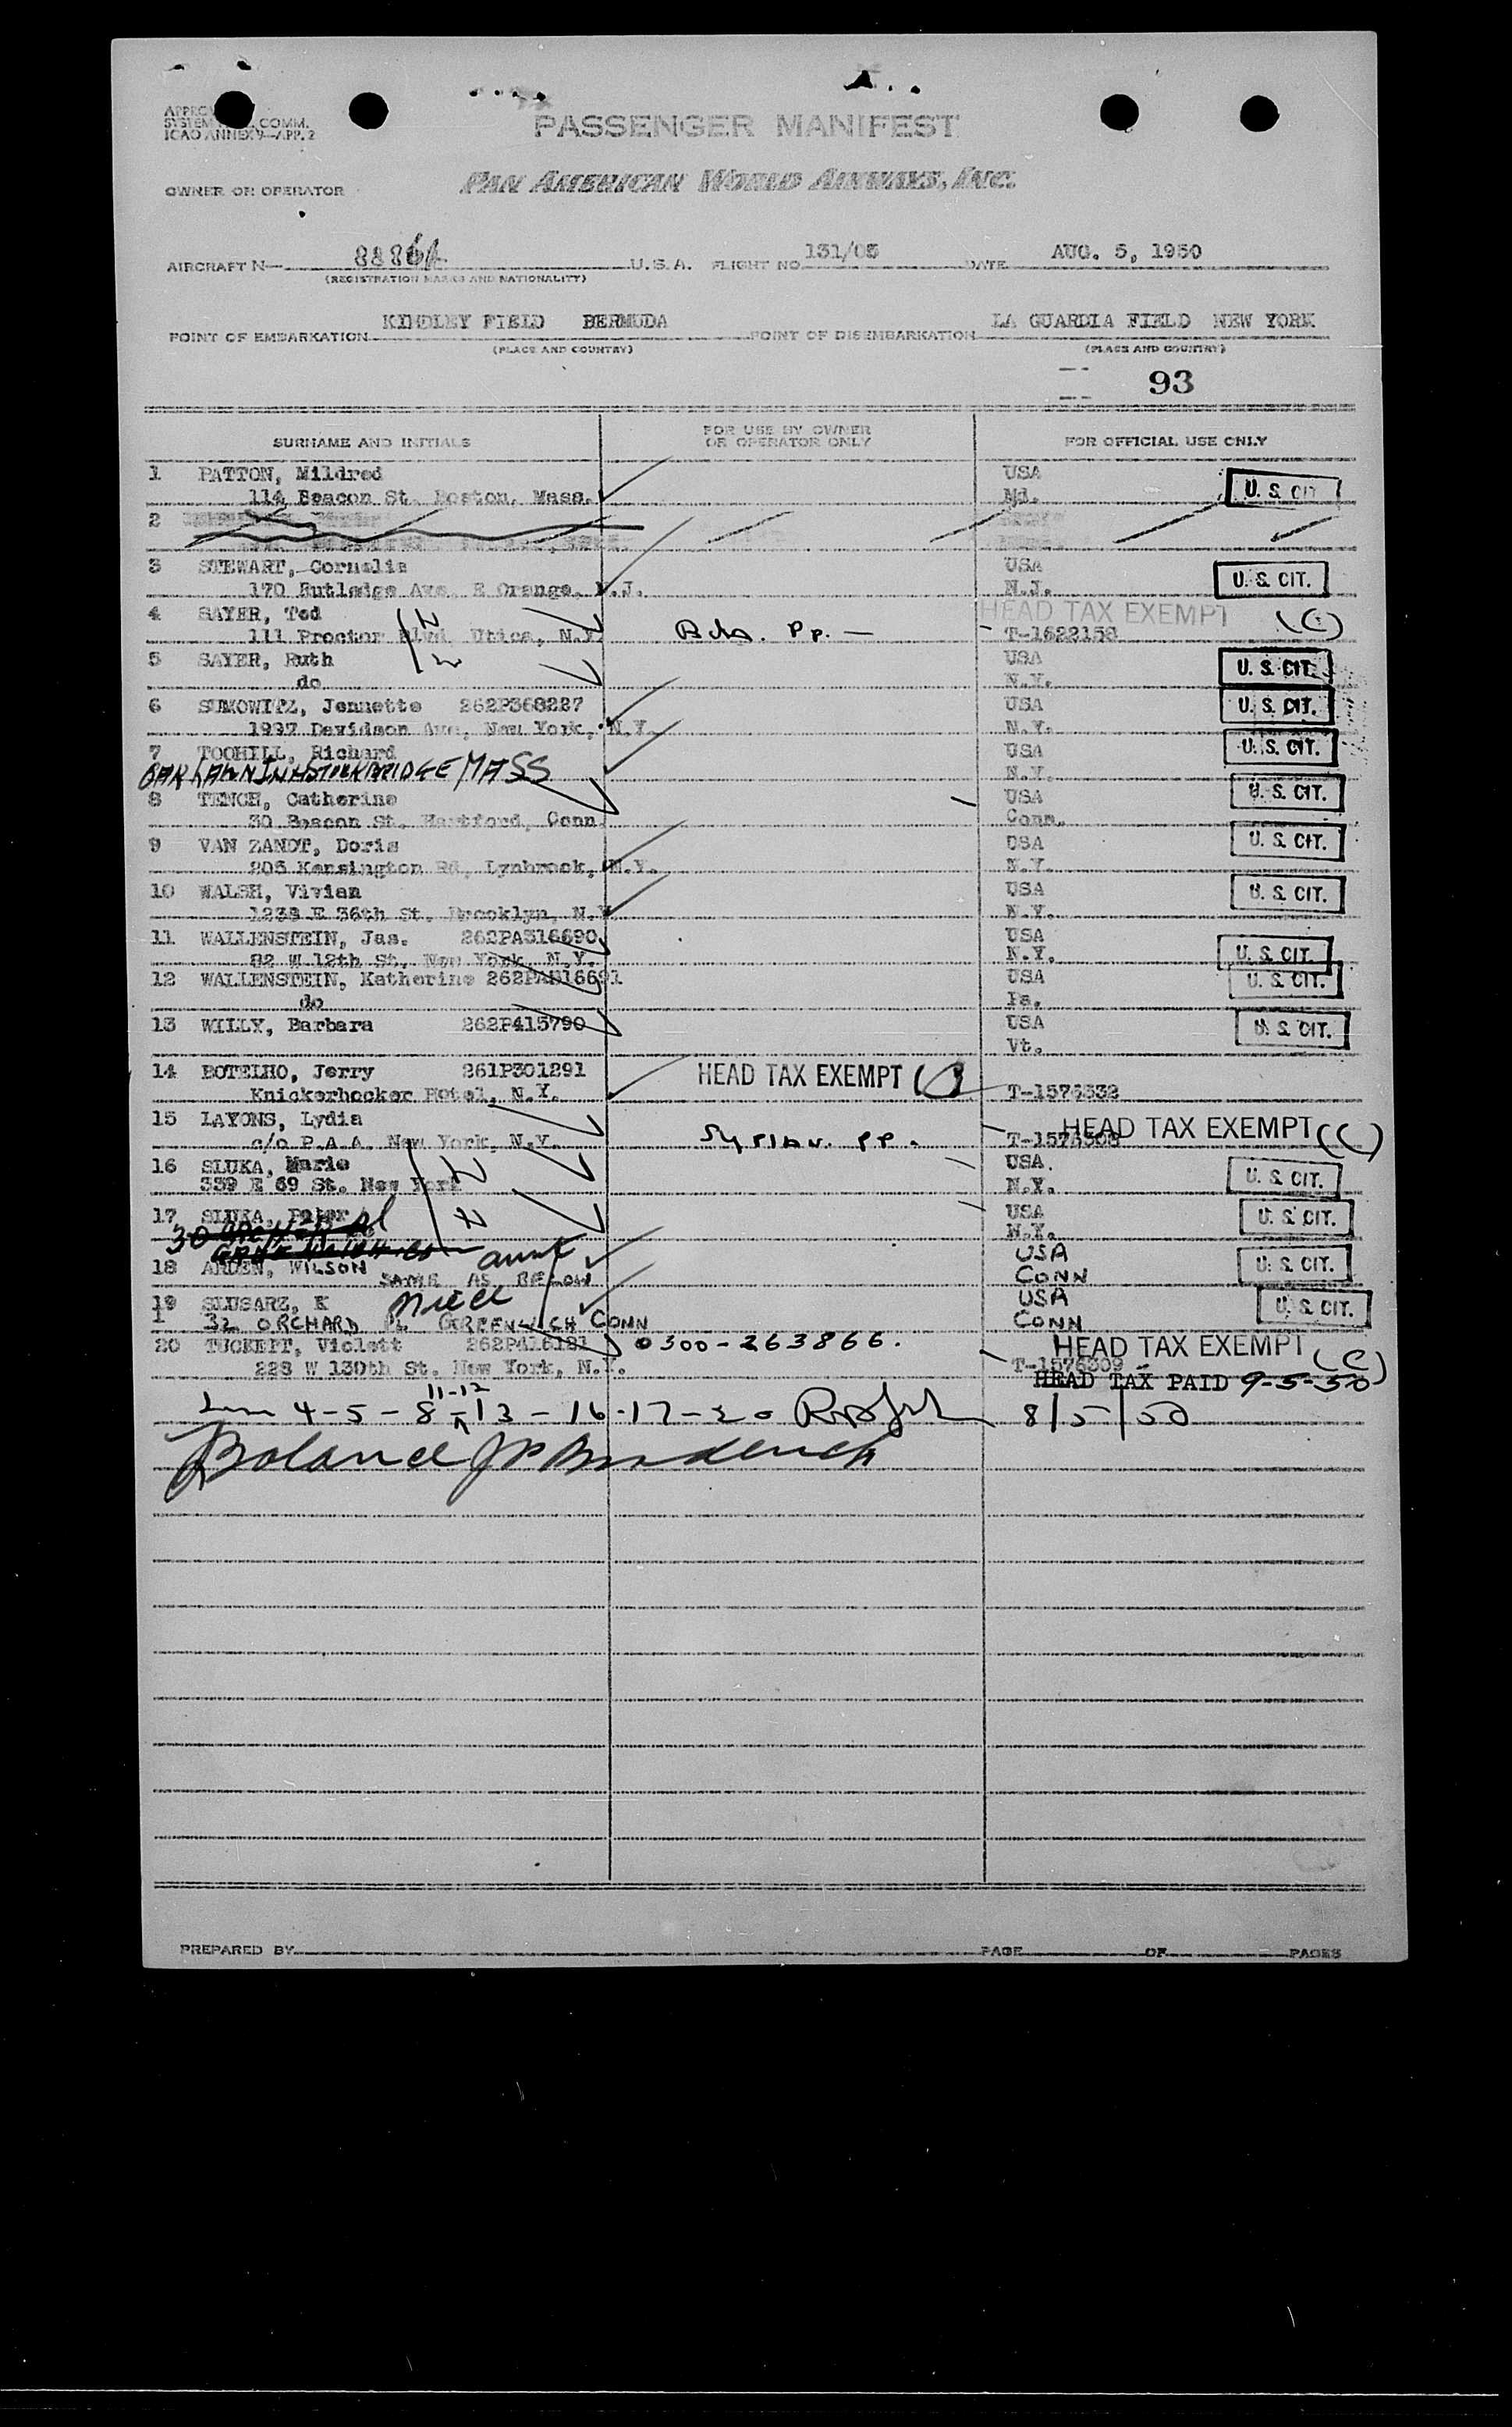 ICAO ANNEX 9—APP. 2
PASSENGER MANIFEST
OWNER OR OPERATOR
PAN AMERICAN WORLD AIRWAYS, INC.
AIRCRAFT N— 8886A U.S.A. FLIGHT NO 131/05 DATE AUG. 5, 1950
(REGISTRATION MARKS AND NATIONALITY)
POINT OF EMBARKATION KINDLEY FIELD BERMUDA POINT OF DISEMBARKATION LA GUARDIA FIELD NEW YORK
(PLACE AND COUNTRY) (PLACE AND COUNTRY)
93
SURNAME AND INITIALS FOR USE BY OWNER OR OPERATOR ONLY FOR OFFICIAL USE ONLY
1 PATTON, Mildred USA
114 Beacon St. Boston, Mass. Md. U. S. CIT
2
3 STEWART, Cornelia USA
170 Rutledge Ave. E Orange, N.J. N.J. U. S. CIT.
4 SAYER, Ted HEAD TAX EXEMPT (C)
111 Proctor Blvd. Utica, N.Y. Bda. Pp. — T-1622150
5 SAYER, Ruth USA
do N.Y. U. S. CIT.
6 SUMOWITZ, Jennette 262P368227 USA
1997 Davidson Ave, New York, N.Y. N.Y. U. S. CIT.
7 TOOHILL, Richard USA
OAK LAWN INN STOCKBRIDGE MASS N.Y. U. S. CIT.
8 TENCH, Catherine USA
30 Beacon St. Hartford, Conn. Conn. U. S. CIT.
9 VAN ZANDT, Doris USA
205 Kensington Rd, Lynbrook, N.Y. N.Y. U. S. CIT.
10 WALSH, Vivian USA
1238 E 36th St. Brooklyn, N.Y. N.Y. U. S. CIT.
11 WALLENSTEIN, Jas. 262PA316690 USA
82 W 12th St. New York, N.Y. N.Y. U. S. CIT.
12 WALLENSTEIN, Katherine 262PA316691 USA
do Pa. U. S. CIT.
13 WILLY, Barbara 262P415790 USA
Vt. U. S. CIT.
14 BOTELHO, Jerry 261P301291 HEAD TAX EXEMPT
Knickerbocker Hotel, N.Y. T-1576332
15 LAYONS, Lydia HEAD TAX EXEMPT (C)
c/o P.A.A. New York, N.Y. Syrian. PP. T-1576308
16 SLUKA, Marie USA.
339 E 69 St. New York N.Y. U. S. CIT.
17 SLUKA, Peter USA
30 N.Y. U. S. CIT.
18 ARDEN, WILSON aunt USA
SAME AS BELOW CONN U. S. CIT.
19 SLUSARZ, K niece USA
32 ORCHARD PL GREENWICH CONN CONN U. S. CIT.
20 TUCKETT, Violett 262P416121 0300-263866. HEAD TAX EXEMPT (C)
228 W 130th St. New York, N.Y. T-1576309
HEAD TAX PAID 9-5-50
11-12
4-5-8-13-16-17-20 8/5/50
PREPARED BY PAGE OF PAGES